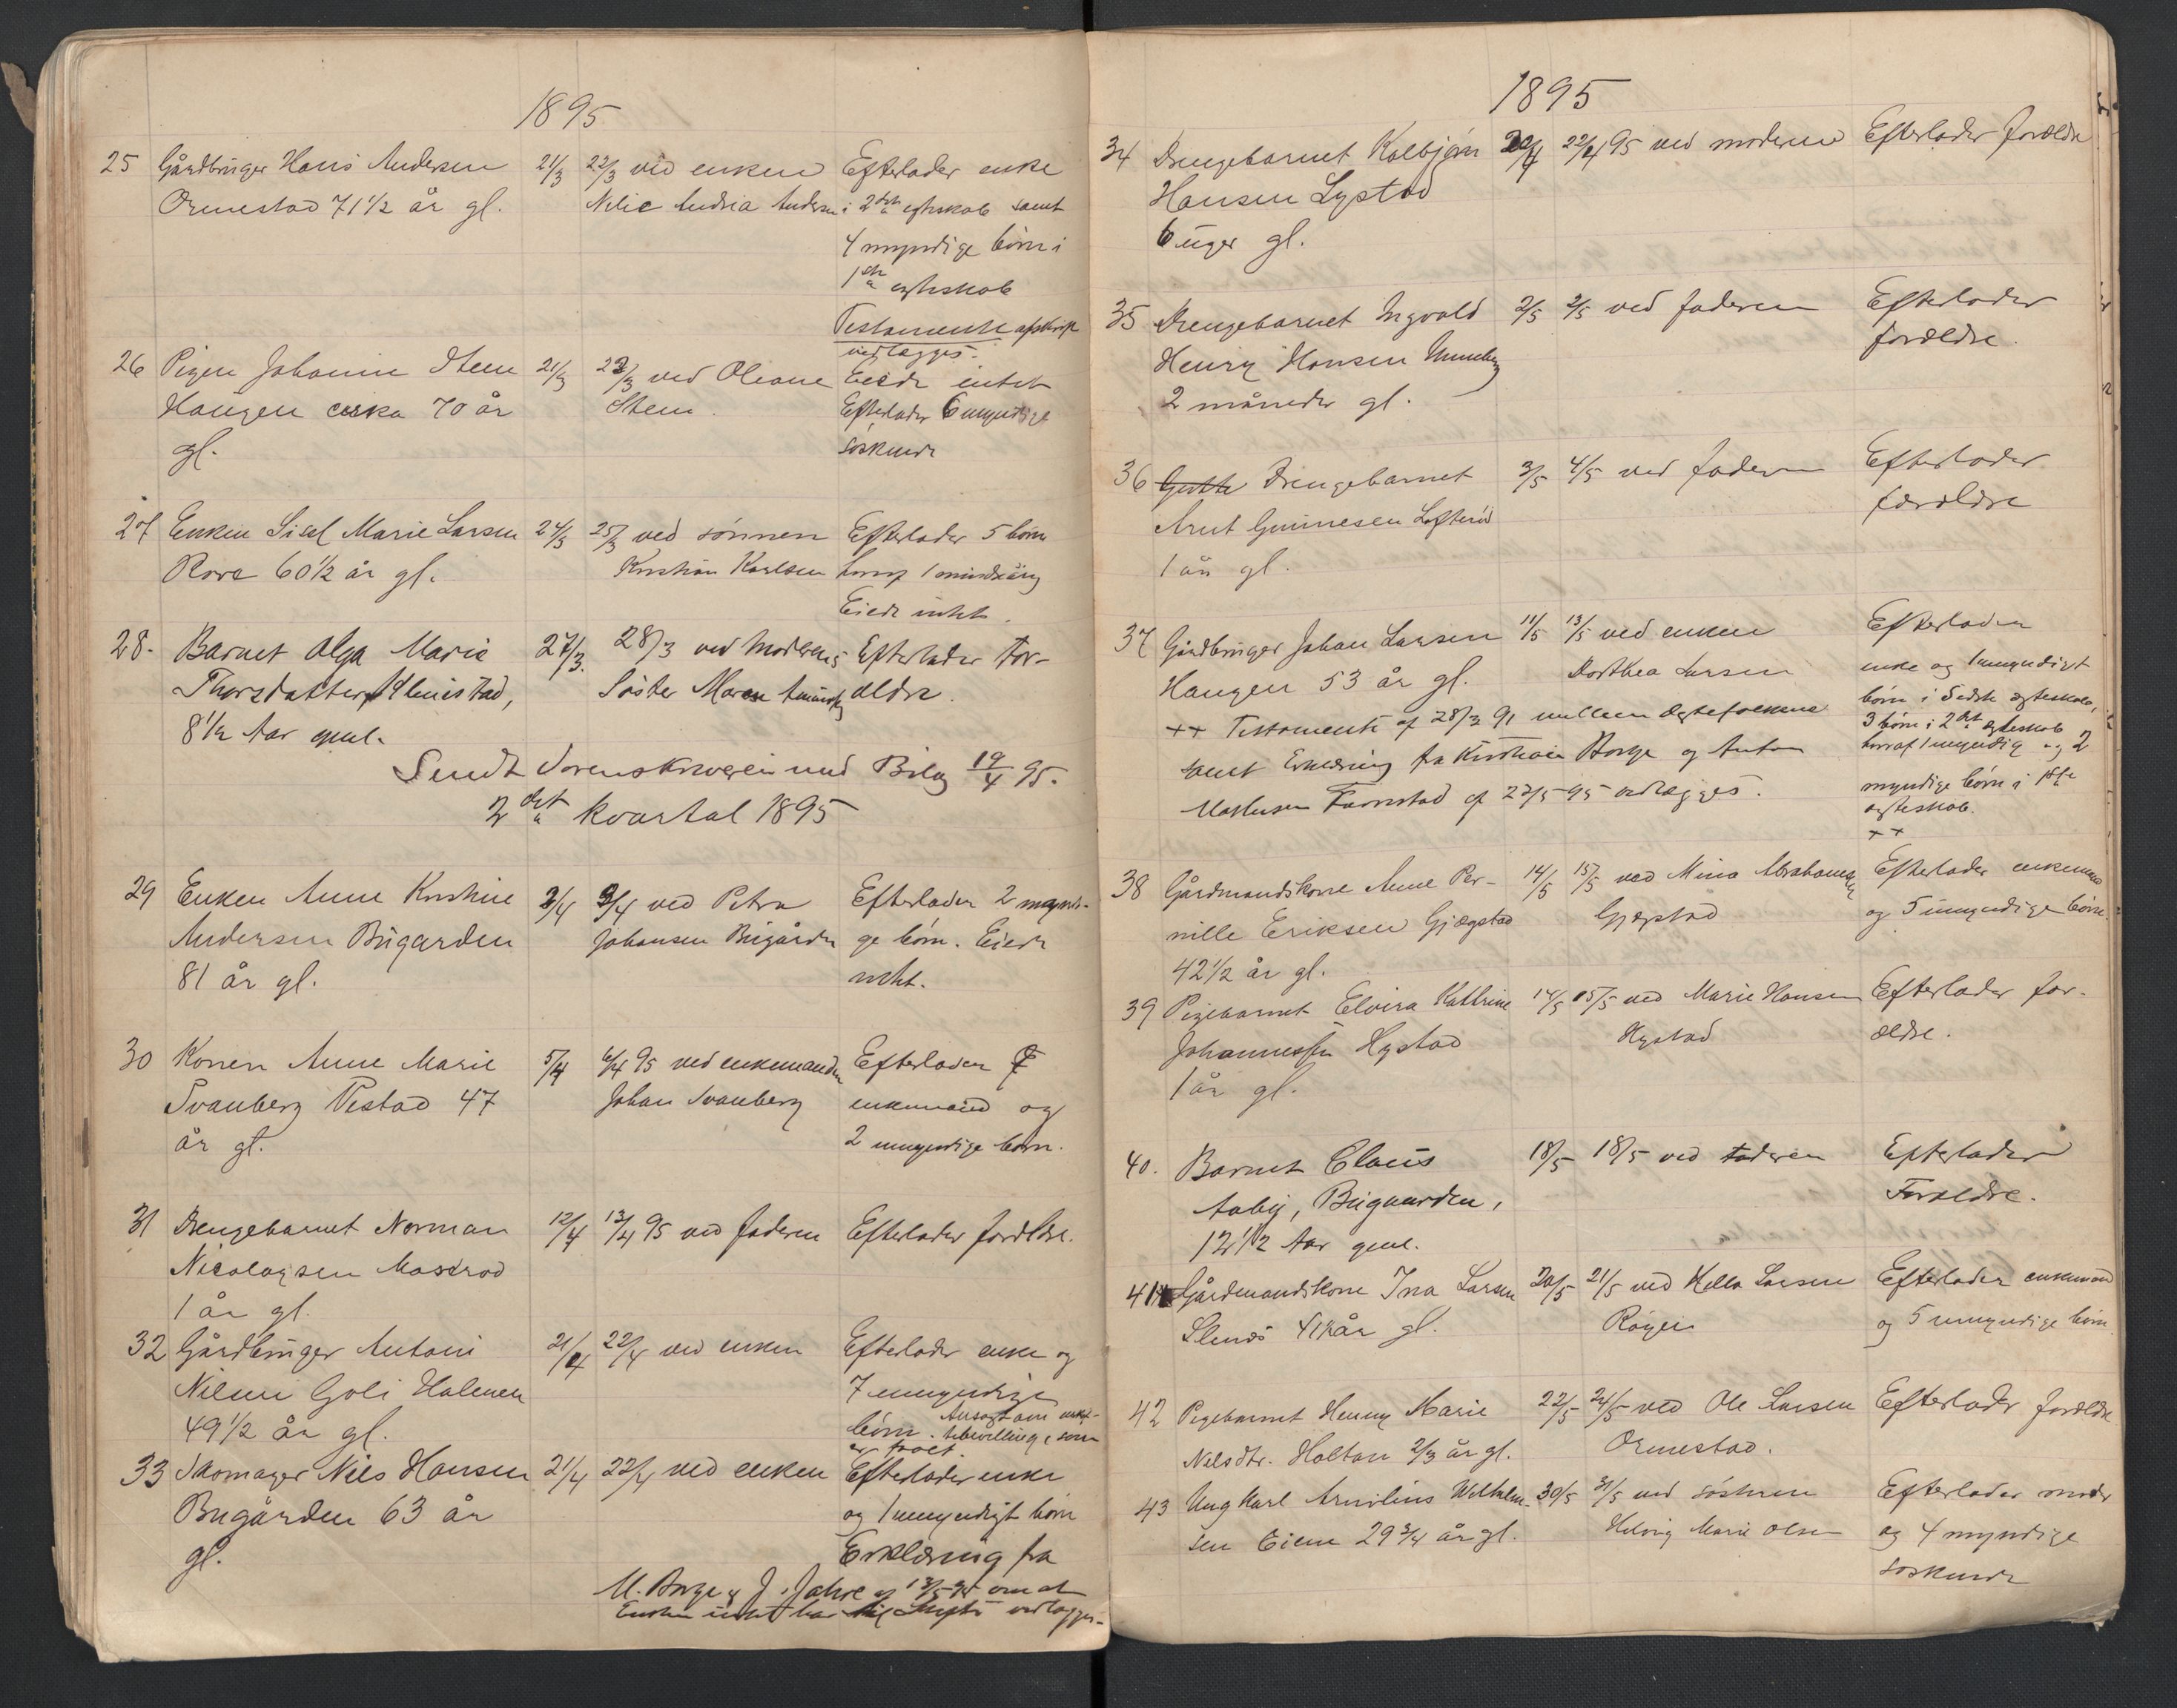 1895
25 Gårdbruger Hans Andersen 21/3 22/3 ved enken Efterlader enke
Ormestad 71 1/2 år gl. Andrea Andersen i 2det egteskab samt
4 myndige børn i
1ste egteskab
Testamente afskrift
vedlægges.
26 Pigen Johanne Steen 21/3 22/3 ved Oleane Eiede intet
Haugen cirka 70 år Steen. Efterlader 6 myndige
gl. søskende
27 Enken Sisel Marie Larsen 24/3 25/3 ved sønnen Efterlader 5 børn
Rove 60 1/2 år gl. Kristian Karlsen hvoraf 1 mindreårig
Eiede intet.
28. Barnet Olga Marie 27/3. 28/3 ved Moderens Efterlader For-
Thorsdatter, Søster Maren ældre.
8 1/2 Aar gml.
Sendt Sorenskriveren med Bilag 19/4 95.
2det kvartal 1895
29 Enken Anne Kristine 2/4 3/4 ved Petra Efterlader 2 myndi-
Andersen Bugården Johansen Bugården ge børn. Eiede
81 år gl. intet.
30 Konen Anne Marie 5/4 6/4 95 ved enkemanden Efterlader
Svanberg Vestad 47 Johan Svanberg enkemand og
år gl. 2 umyndige børn.
31 Drengebarnet Norman 12/4 13/4 95 ved faderen Efterlader forældre.
Nicolaysen Masserød
1 år gl.
32 Gårdbruger Anton 21/4 22/4 ved enken Efterlader enke og
Nilsen Goli Holmen 7 umyndige
49 1/2 år gl. børn. Ansøgt om uskf-
tebevilling, som
33 Skomager Nils Hansen 21/4 22/4 ved enken Efterlader enke
Bugården 63 år og 1 umyndigt børn
gl. Erklæring fra
M. Borge og J. Jahre af 13/5 95 om at
Enken intet har til Skifte vedlægges.
1895
34 Drengebarnet Kolbjørn 22/4 22/4 95 ved moderen Efterlader forældre
Hansen Lystad
6 uger gl.
35 Drengebarnet Ingvald 2/5 2/5 ved faderen Efterlader
Henry Hansen forældre.
2 måneder gl.
36 Gutte Drengebarnet 3/5 4/5 ved faderen Efterlader
Arnt Gunnesen Lofterød forældre
1 år gl.
37 Gårdbruger Johan Larsen 11/5 13/5 ved enken Efterlader
Haugen 53 år gl. Dorthea Larsen enke og 1 umyndigt
børn i Sidste egteskab,
++ Testamente af 28/3 91 mellem Ægtefolkene 3 børn i 2det egteskab
hvoraf 1 myndig og 2
samt Erklæring fra Kristian Borge og Anton
myndige børn i 1ste
Mathisen Farmstad af 27/5 95 vedlægges. egteskab.
++
38 Gårdmandskone Anne Per- 14/5 15/5 ved Mina Abrahamsen Efterlader enkemand
nille Eriksen Gjøgstad Gjøgstad og 5 umyndige børn.
42 1/2 år gl.
39 Pigebarnet Elvira Kathrine 14/5 15/5 ved Marie Hansen Efterlader for-
Johannessen Hystad Hystad ældre.
1 år gl.
40. Barnet Claus 18/5 18/5 ved Faderen Efterlader
Aaby, Bugaarden, Forældre.
12 1/2 Aar gml.
41 Gårdmandskone Ina Larsen 20/5 21/5 ved Hella Larsen Efterlader enkemand
41 år gl. og 5 umyndige børn.
42 Pigebarnet Henny Marie 22/5 24/5 ved Ole Larsen Efterlader forældre
Nilsdtr. Holtan 2/3 år gl. Ormestad.
43 Ung Karl Arnilius Wilhelm- 30/5 31/5 ved søsteren Efterlader moder
sen Eien 29 3/4 år gl. Helvig Marie Olsen og 4 myndige
søskende